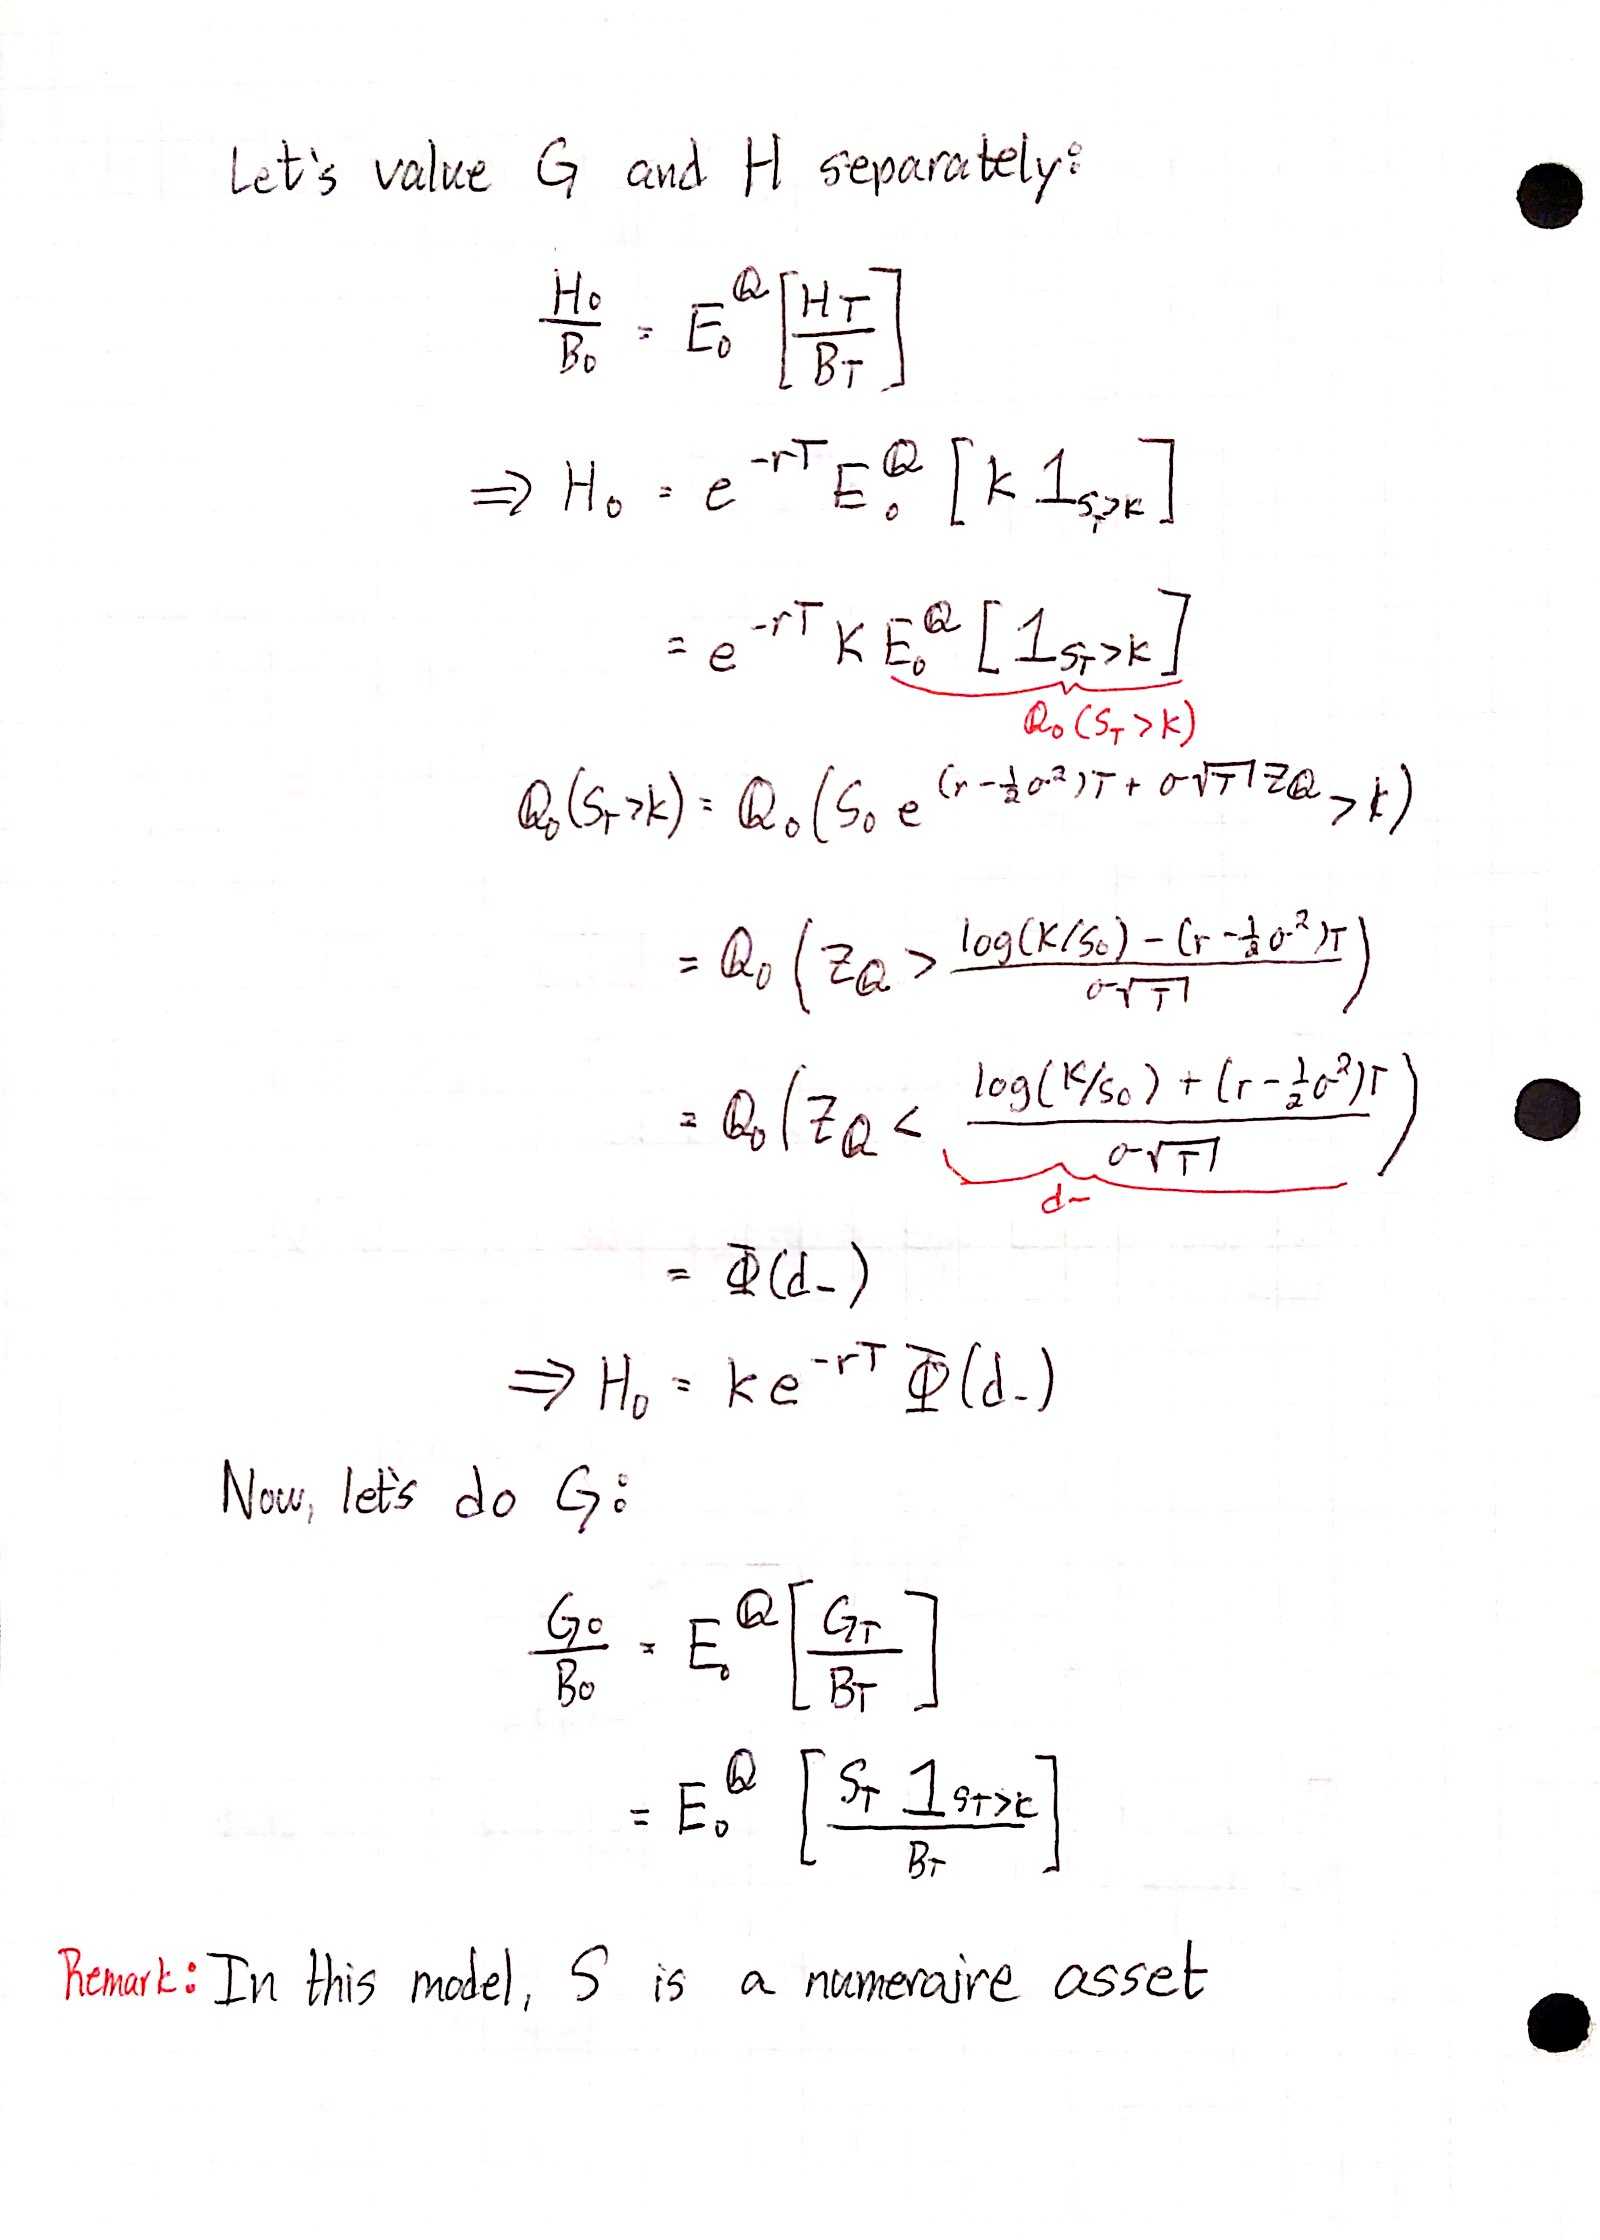 Let's value G and H separately:
H₀/B₀ = E₀^ℚ [H_T/B_T]
⇒ H₀ = e^{-rT} E₀^ℚ [K 1_{S_T>K}]
= e^{-rT} K E₀^ℚ [1_{S_T>K}]
ℚ₀(S_T>K)
ℚ₀(S_T>K) = ℚ₀(S₀ e^{(r-½σ²)T + σ√T Z_ℚ} > K)
= ℚ₀(Z_ℚ > (log(K/S₀) - (r-½σ²)T)/(σ√T))
= ℚ₀(Z_ℚ < (log(K/S₀) + (r-½σ²)T)/(σ√T))
d₋
= Φ(d₋)
⇒ H₀ = Ke^{-rT} Φ(d₋)
Now, let's do G:
G₀/B₀ = E₀^ℚ [G_T/B_T]
= E₀^ℚ [S_T 1_{S_T>K}/B_T]
Remark: In this model, S is a numeraire asset